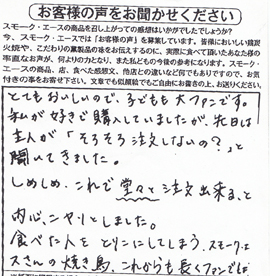 お客様の声をお聞かせください
スモーク・エースの商品を召し上がってのご感想はいかがでしたでしょうか?
今、スモーク・エースでは『お客様の声』を募集しています。皆様においしい鶏炭
火焼や、こだわりの燻製品の味をお伝えするのに、実際に食べて頂いたあなた様の
率直なお声が、何よりの力となり、また私どもの今後の参考になります。スモーク・
エースの商品、店、食べた感想文、他店との違いなど何でもありですので、お気
付きの事をお寄せ下さい。文章でも似顔絵でもご自由にお書きの上、お送りください。
とてもおいしいので、子どもも大ファンです。
私が好きで購入していましたが、先日は
主人が「そろそろ注文しないの?」と
聞いてきました。
しめしめ、これで堂々と注文出来る、と
内心、ニヤリとしました。
食べた人をとりこにしてしまう、スモークエー
スさんの焼き鳥、これからも長くファンでい